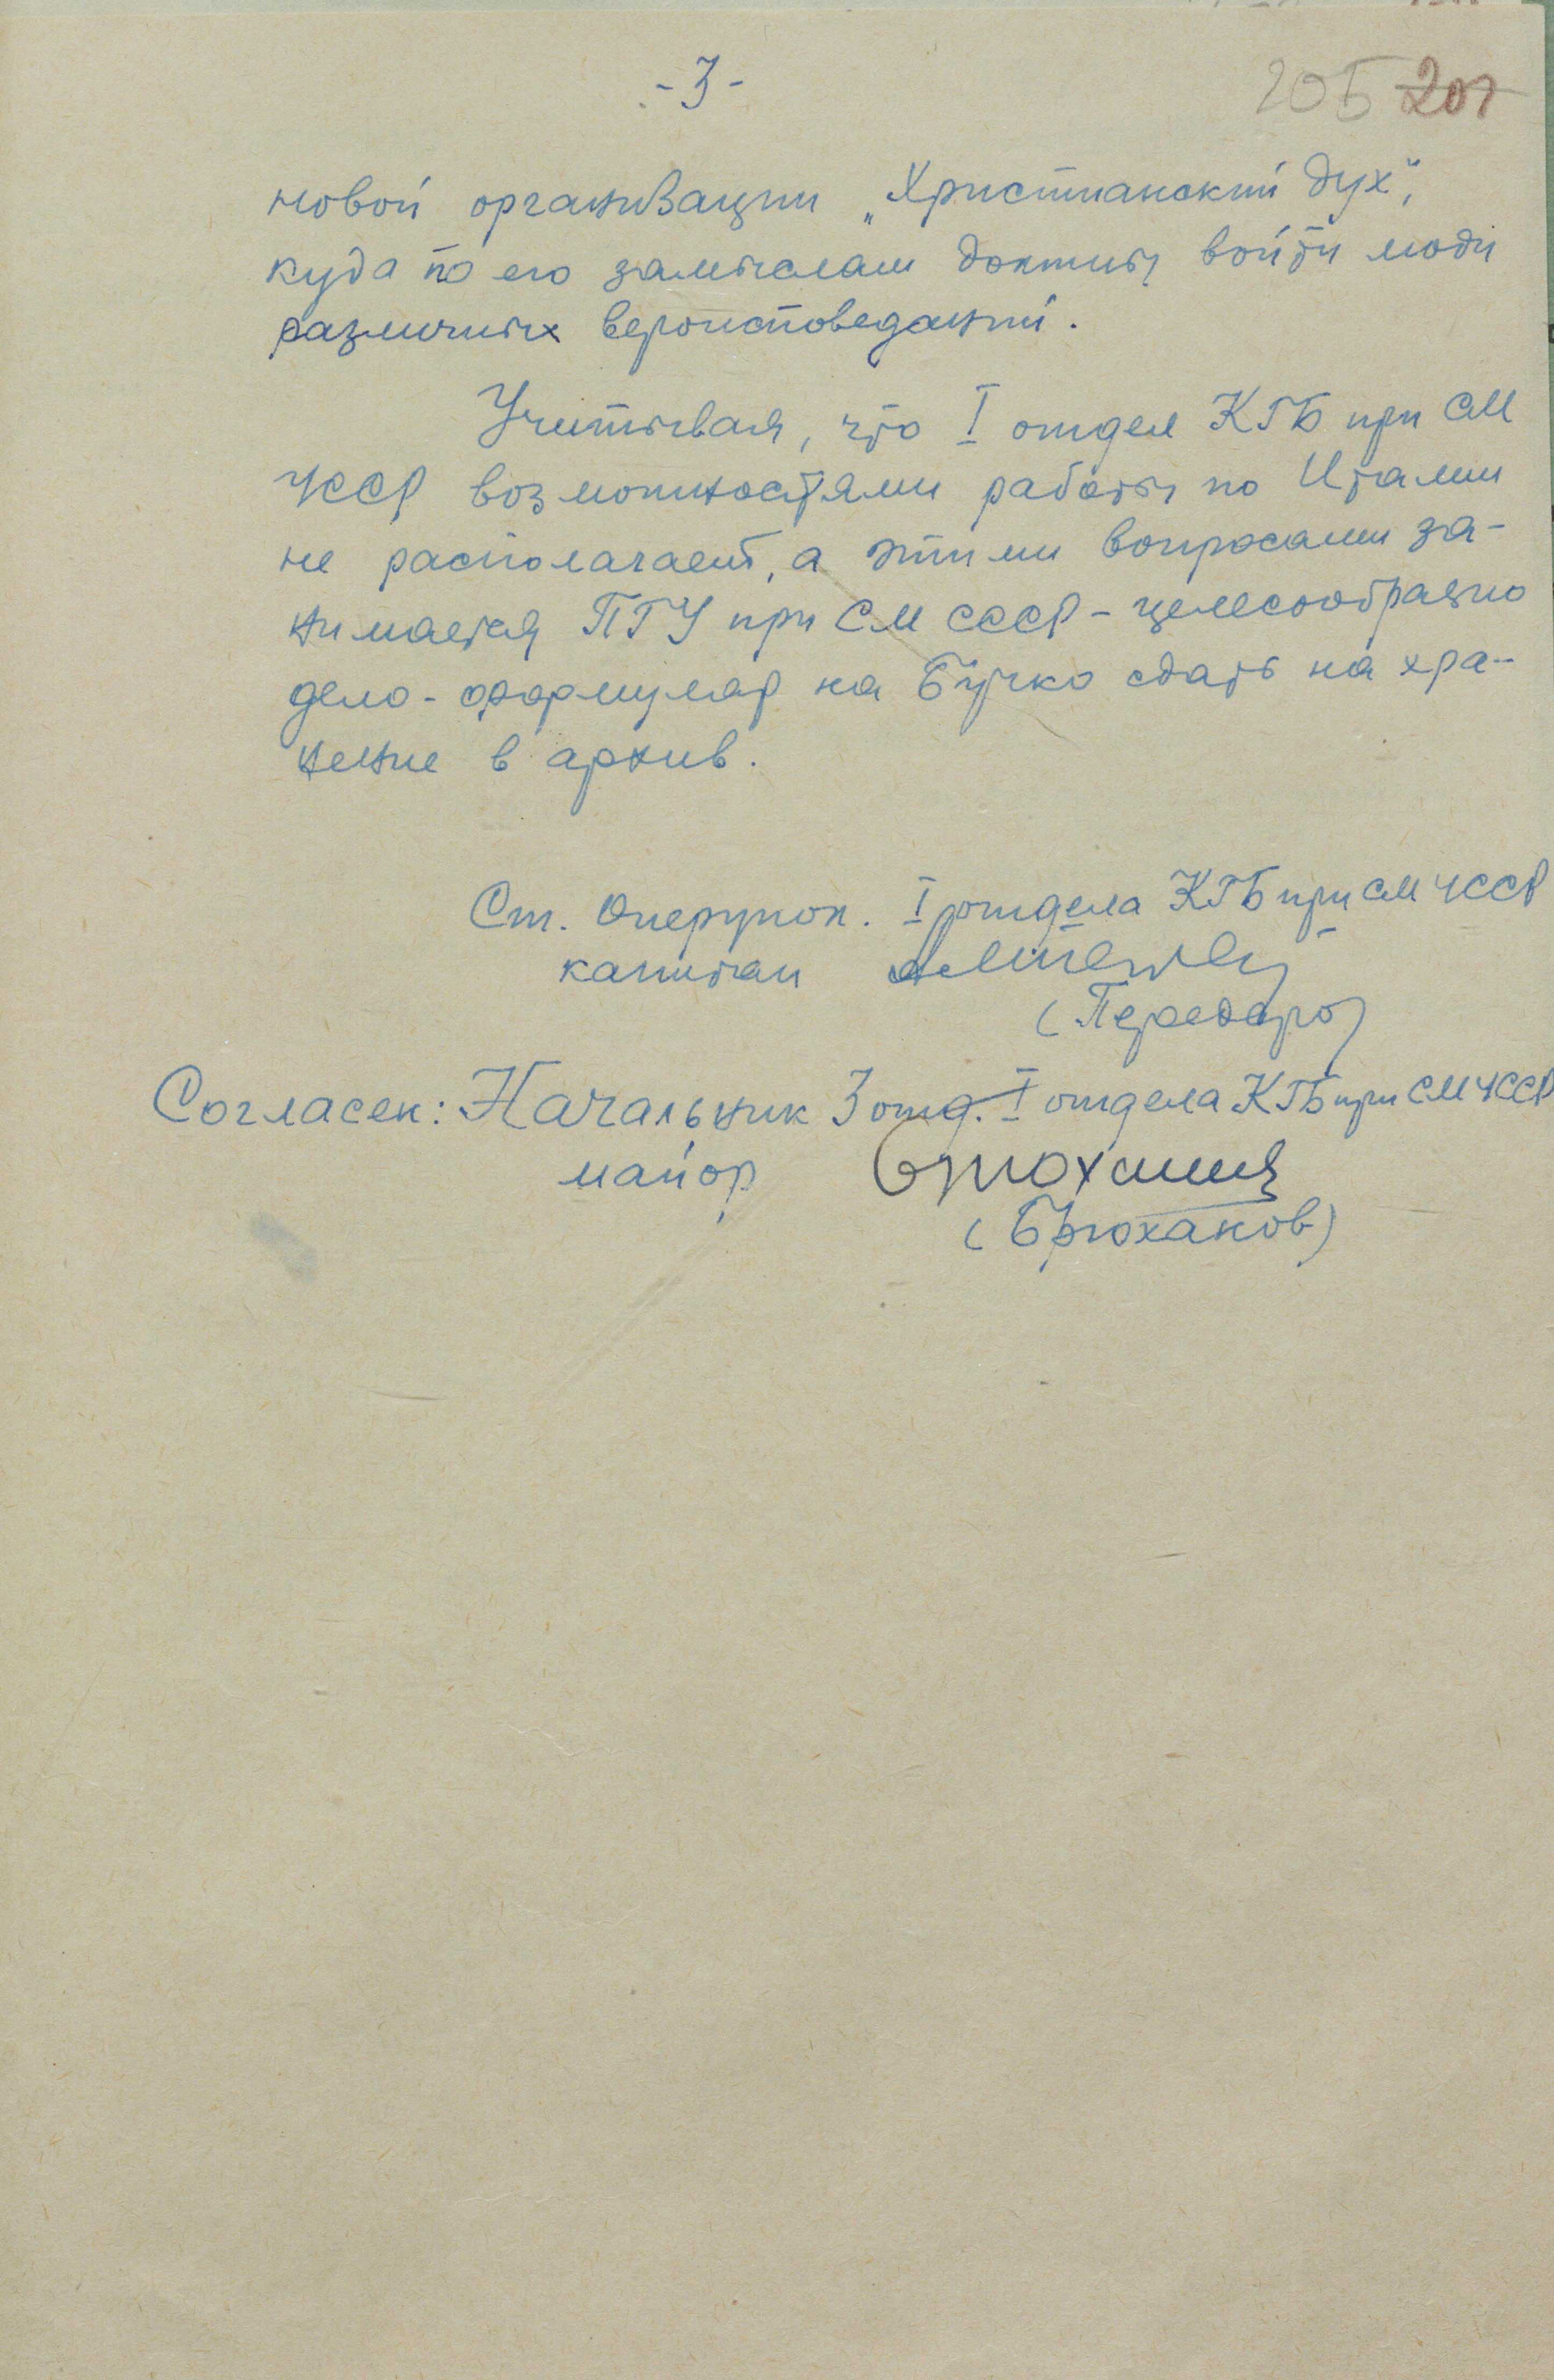 -3-
205 207
новой организации „Христианский дух“,
куда по его замыслам должны войти люди
различных вероисповеданий.
Учитывая, что I отдел КГБ при СМ
УССР возможностями работы по Италии
не располагает, а этими вопросами за-
нимается ПГУ при СМ СССР - целесообразно
дело-формуляр на Бучко сдать на хра-
нение в архив.
Ст. оперупол. I отдела КГБ при СМ УССР
капитан
Согласен: Начальник 3 отд. I отдела КГБ при СМ УССР
майор
(Брюханов)